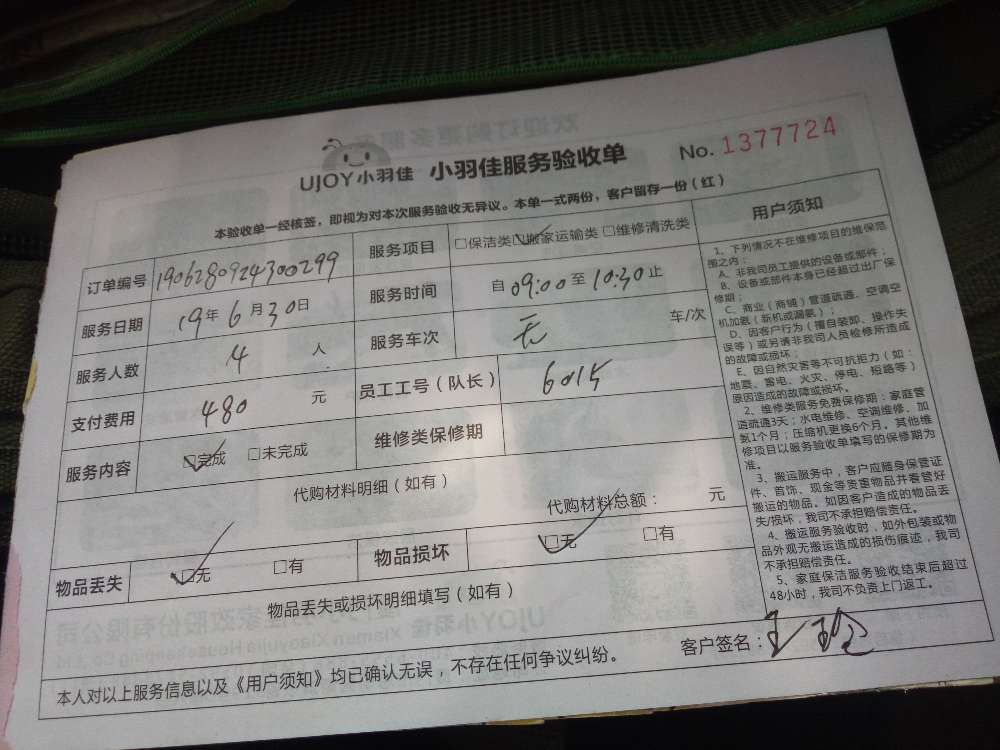 UJOY小羽佳 小羽佳服务验收单 No. 1377724
本验收单一经核签，即视为对本次服务验收无异议。本单一式两份，客户留存一份（红）
订单编号 1906280924300299 服务项目 □保洁类 ☑搬家运输类 □维修清洗类
服务日期 19年6月30日 服务时间 自09:00至10:30止
服务人数 4 人 服务车次 无 车/次
支付费用 480 元 员工工号（队长） 6015
服务内容 ☑完成 □未完成 维修类保修期
代购材料明细（如有）
代购材料总额： 元
物品丢失 ☑无 □有 物品损坏 ☑无 □有
物品丢失或损坏明细填写（如有）
本人对以上服务信息以及《用户须知》均已确认无误，不存在任何争议纠纷。
客户签名：
用户须知
1、下列情况不在维修项目的维保范
围之内：
A、非我司员工提供的设备或部件；
B、设备或部件本身已经超过出厂保
修期；
C、商业（商铺）管道疏通、空调空
机加氨（新机或漏氨）；
D、因客户行为（擅自装卸、操作失
误等）或另请非我司人员检修所造成
的故障或损坏；
E、因自然灾害等不可抗拒力（如：
地震、雷电、火灾、停电、短路等）
原因造成的故障或损坏。
2、维修类服务免费保修期：家庭管
道疏通3天；水电维修、空调维修、加
氨1个月；压缩机更换6个月。其他维
修项目以服务验收单填写的保修期为
准。
3、搬运服务中，客户应随身保管证
件、首饰、现金等贵重物品并看管好
搬运的物品。如因客户造成的物品丢
失/损坏，我司不承担赔偿责任。
4、搬运服务验收时，如外包装或物
品外观无搬运造成的损伤痕迹，我司
不承担赔偿责任。
5、家庭保洁服务验收结束后超过
48小时，我司不负责上门返工。